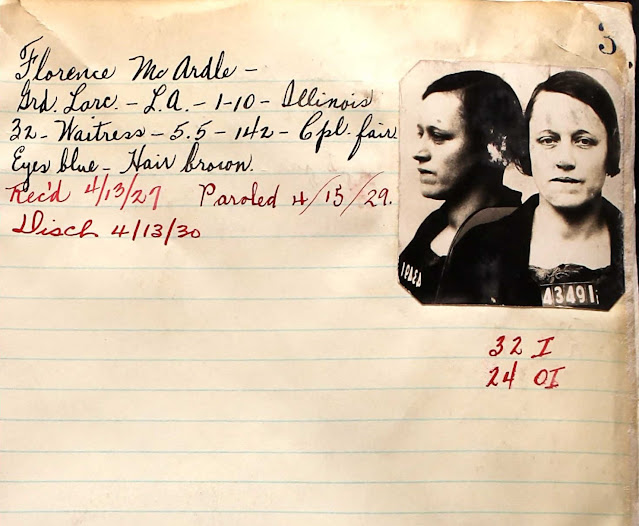 3
Florence McArdle -
Grd. Larc. - L.A. - 1-10 - Illinois
32 - Waitress - 5.5 - 142 - Cpl. fair
Eyes blue - Hair brown.
Rec'd 4/13/27 Paroled 4/15/29.
Disch 4/13/30
43491
32 I
24 OI